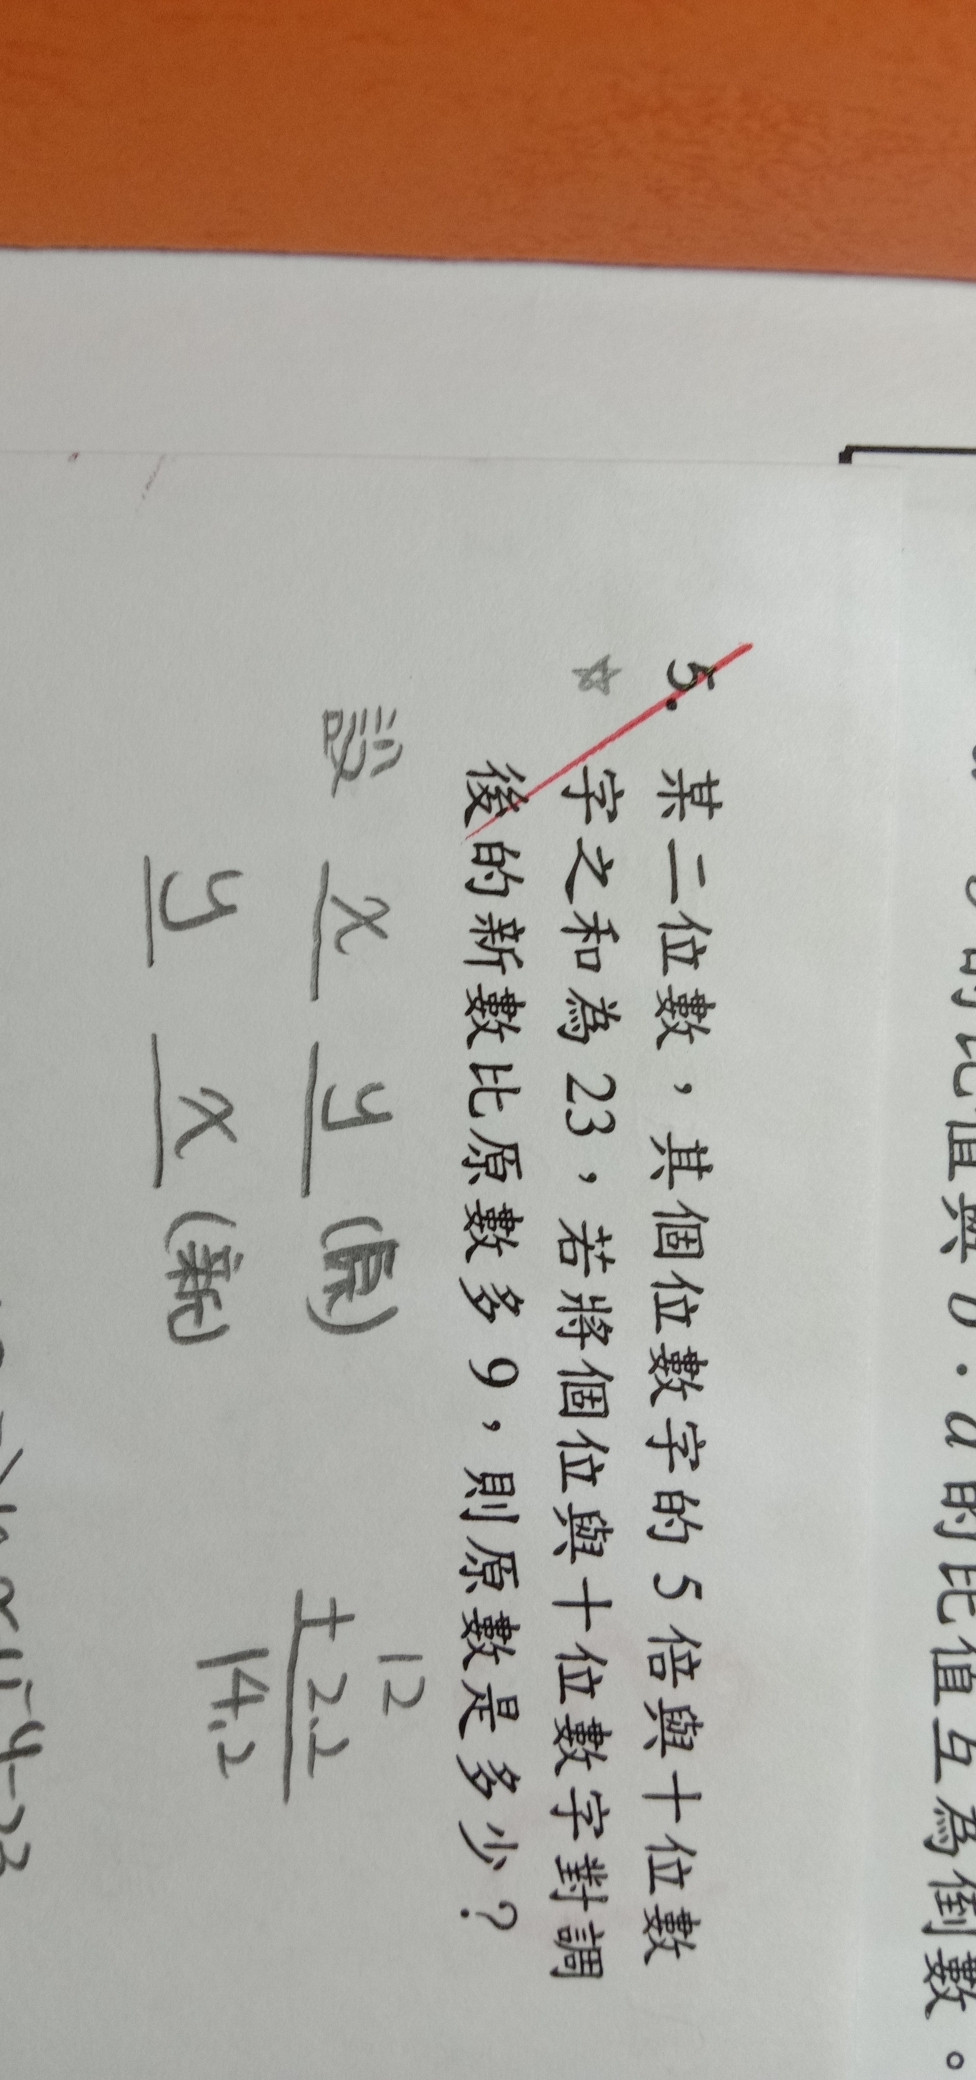 的比值與 b · a 的比值互為倒數。
5. 某二位數，其個位數字的 5 倍與十位數
☆ 字之和為 23，若將個位與十位數字對調
後的新數比原數多 9，則原數是多少？
設 x y (原)
y x (新)
12
+ 2.2
14.2